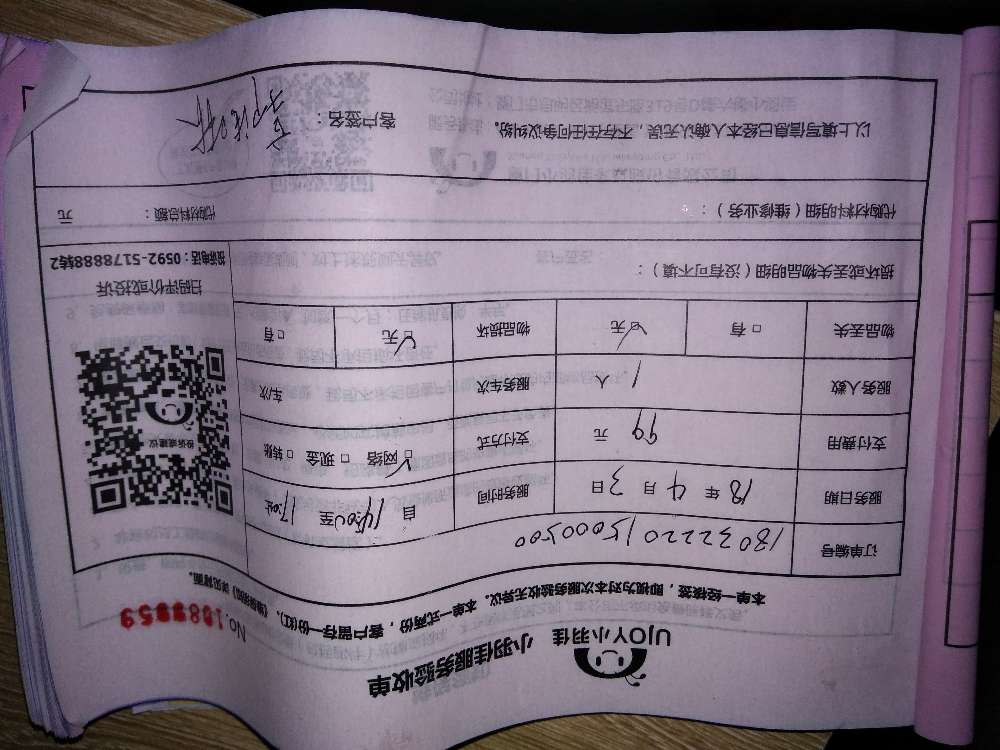 UJOY小羽佳 小羽佳服务验收单
No.1089959
本单一经核签，即视为对本次服务验收无异议。本单一式两份，客户留存一份(红)。
订单编号 1803222015000500
服务日期 18年4月3日 服务时间 自14:00至17:00止
支付费用 99元 支付方式 ☑网络 □现金 □转账
服务人数 1人 服务车次 车次
物品丢失 □有 ☑无 物品损坏 ☑无 □有
损坏或丢失物品明细（没有可不填）：
投诉或建议
扫码评价或投诉
0592-5178888转2
代购材料明细（维修业务）： 代购材料总额： 元
以上填写信息已经本人确认无误，不存在任何争议纠纷。 客户签名：